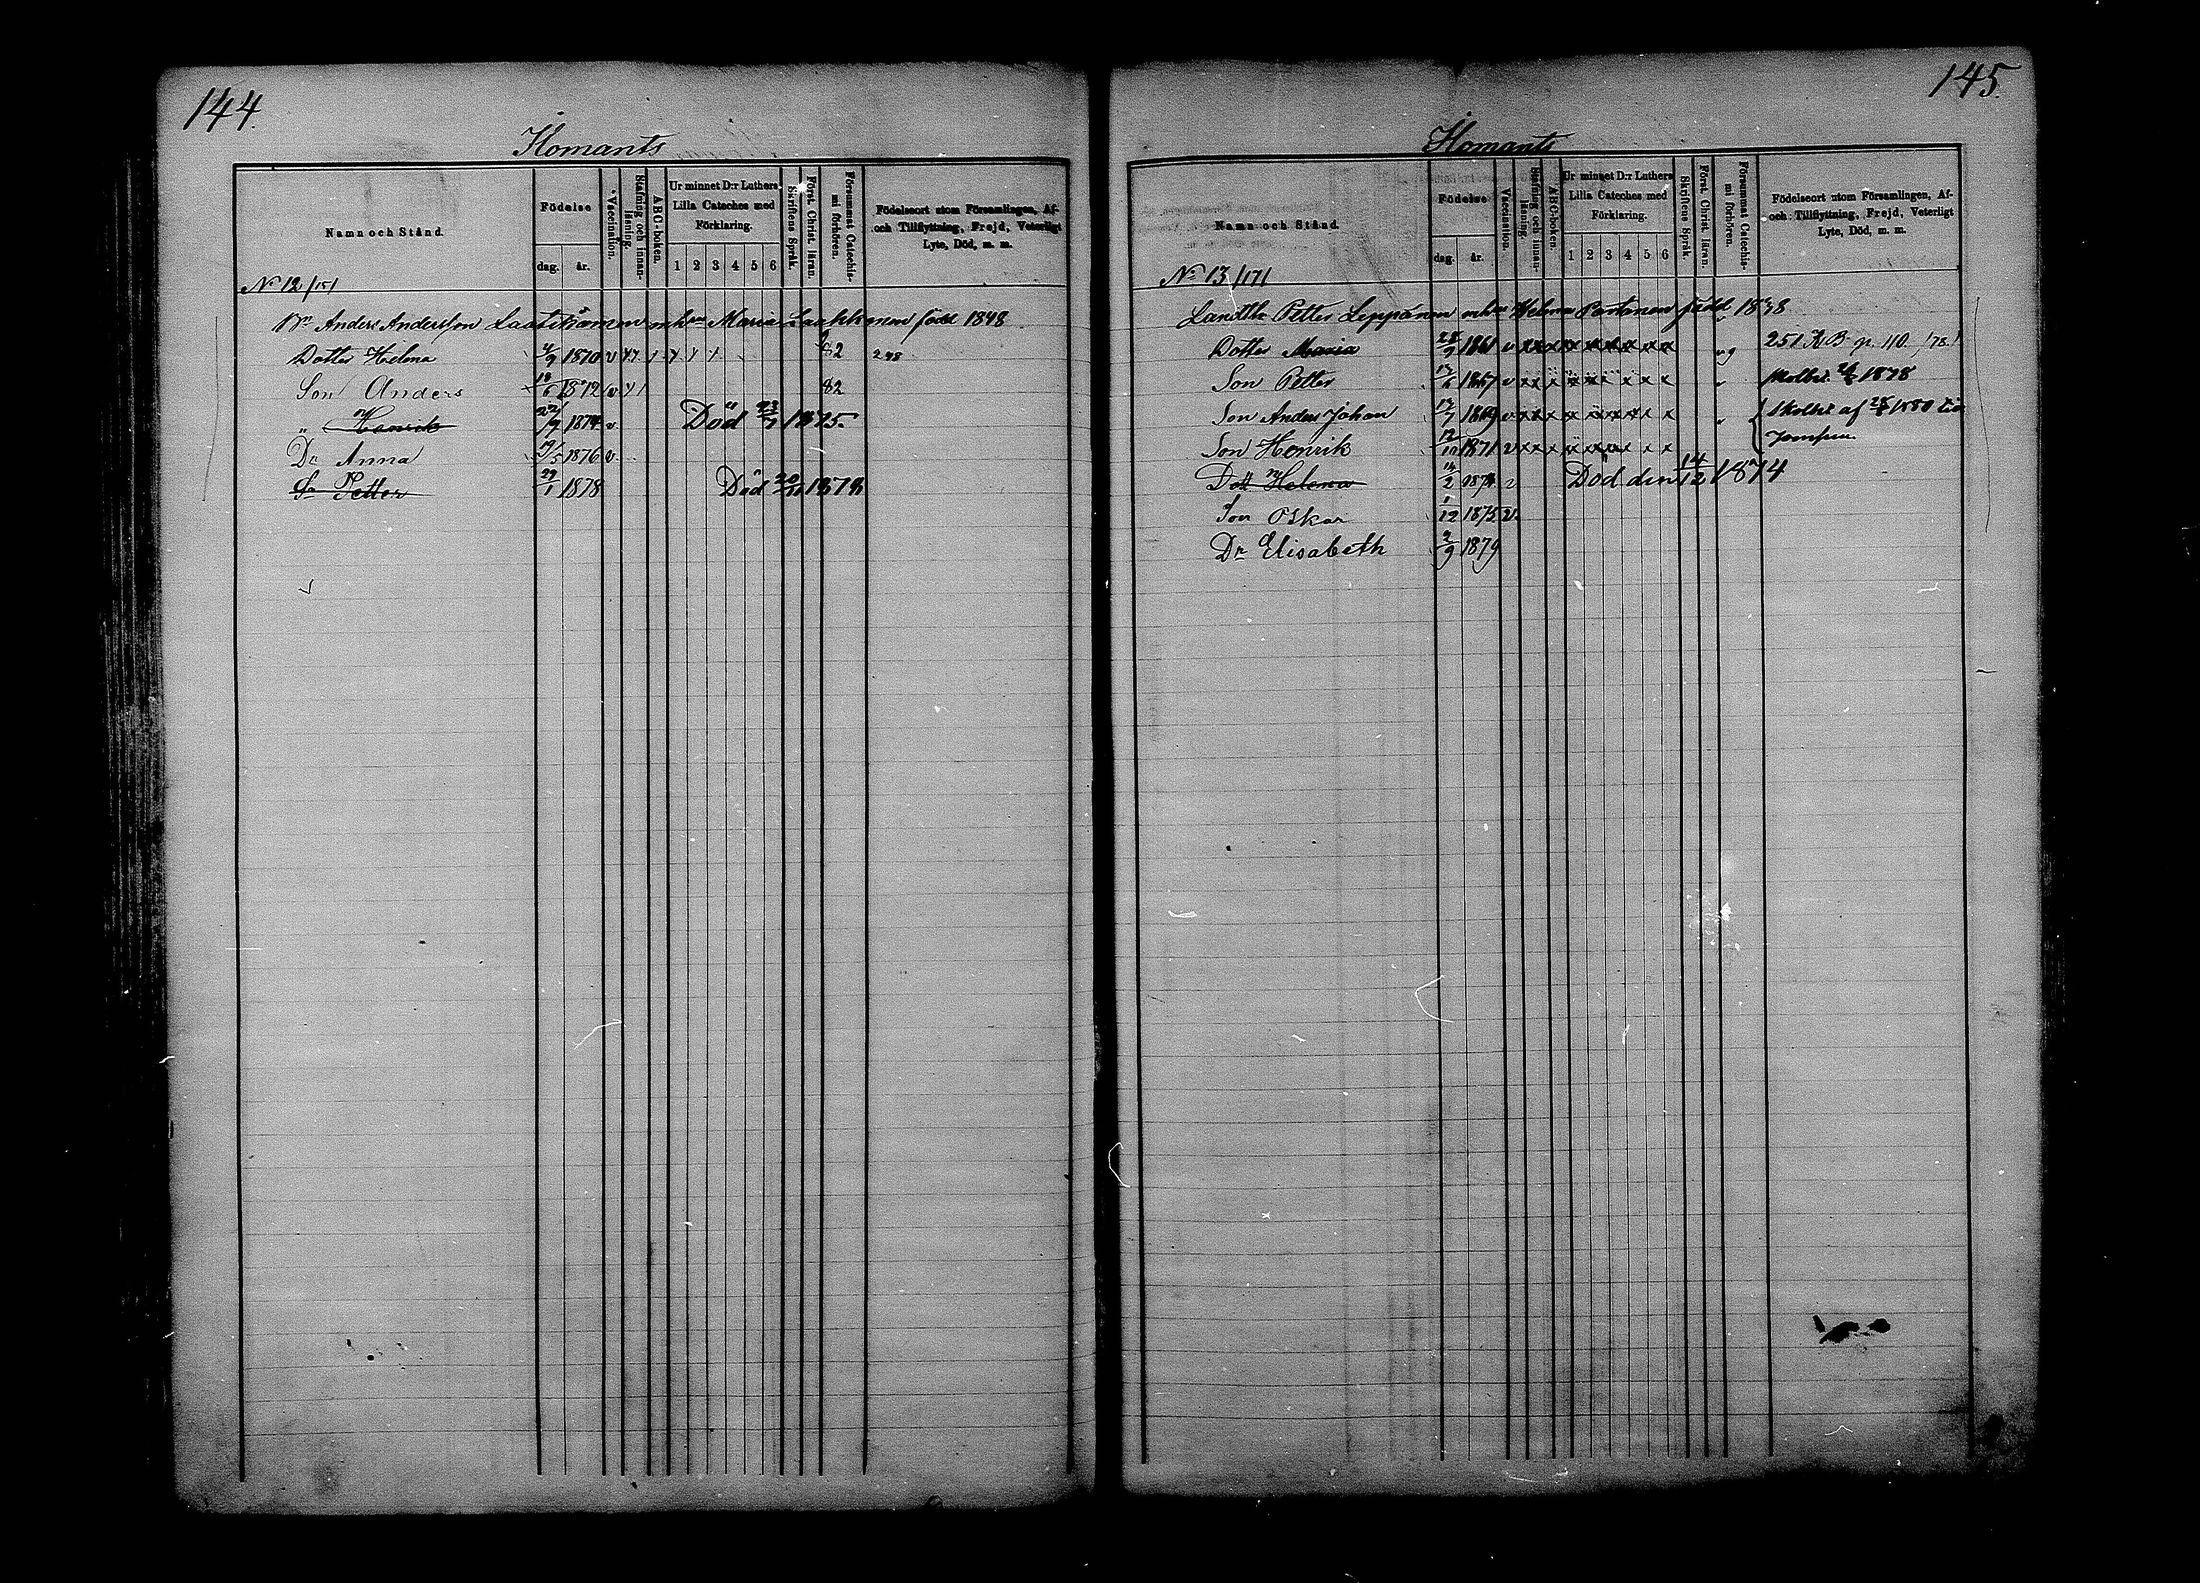 144.
Ilomants
Namn och Stånd.
Födelse
dag. år.
Vaccination.
Stafning och innanläsning.
ABC-boken.
Ur minnet D:r Luthers Lilla Cateches med Förklaring.
1 2 3 4 5 6
Skriftens Språk.
Först. Christ. läran.
Försummat Catechismi förhören.
Födelseort utom Församlingen, Af- och Tillflyttning, Frejd, Veterligt Lyte, Död, m. m.
No 12/151
Bn Anders Andersson Laatikainen m hu Maria Laakkonen född 1848
Dotter Helena 4/9 1870 v 82 248
Son Anders 18/6 1872 v 82
" Henrik 22/9 1874 v. Död 23/7 1875.
Dr Anna 19/5 1876 v.
Sn Petter 29/1 1878 Död 20/11 1878
145.
Ilomants
Namn och Stånd.
Födelse
dag. år.
Vaccination.
Stafning och innanläsning.
ABC-boken.
Ur minnet D:r Luthers Lilla Cateches med Förklaring.
1 2 3 4 5 6
Skriftens Språk.
Först. Christ. läran.
Försummat Catechismi förhören.
Födelseort utom Församlingen, Af- och Tillflyttning, Frejd, Veterligt Lyte, Död, m. m.
No 13/171
Landtbr Petter Leppänen m hu Helena Partanen född 1838
Dotter Maria 28/9 1861 v x x x x x x x x x 251 KB p. 110. /78./
Son Petter 17/6 1867 v x x x x x x x x x Skolbet. 1878
Son Anders Johan 17/7 1869 v x x x x x x x x x Skolbet af 25/5 1880 till
Son Henrik 12/10 1871 v x x x x x x x x x
Dott Helena 14/2 1874 v Död den 14/12 1874
Son Oskar 1/12 1875 v.
Dr Elisabeth 2/9 1879